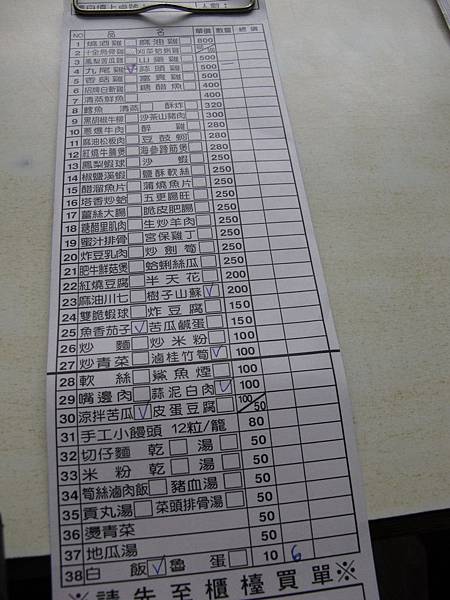 NO 品名 單價 數量 總價
1 燒酒雞□ 麻油雞□ 800
2 十全烏骨雞□ 刈菜蛤蜊雞□
3 鳳梨苦瓜雞□ 山藥雞□ 500
4 九尾雞☑ 蒜頭雞□ 500
5 香菇雞□ 富貴雞□ 500
6 招牌白斬雞□ 糖醋魚□ 400
7 清蒸鮮魚□ 400
8 鱈魚 清蒸□ 酥炸□ 320
9 黑胡椒牛柳□ 沙茶山豬肉□ 300
10 蔥爆牛肉□ 醉雞□ 280
11 麻油松板肉□ 豆豉蚵□ 280
12 紅燒牛腩煲□ 海參蹄筋煲□ 280
13 鳳梨蝦球□ 沙蝦□ 250
14 椒鹽溪蝦□ 鹽酥軟絲□ 250
15 醋溜魚片□ 蒲燒魚片□ 250
16 塔香炒蛤□ 五更腸旺□ 250
17 薑絲大腸□ 脆皮肥腸□ 250
18 糖醋里肌肉□ 生炒羊肉□ 250
19 蜜汁排骨□ 宮保雞丁□ 250
20 炸豆乳肉□ 炒劍筍□ 250
21 肥牛鮮菇煲□ 蛤蜊絲瓜□ 250
22 紅燒豆腐□ 半天花□ 200
23 麻油川七□ 樹子山蘇☑ 200
24 雙脆蝦球□ 炸豆腐□ 150
25 魚香茄子☑ 苦瓜鹹蛋□ 150
26 炒麵□ 炒米粉□ 100
27 炒青菜□ 滷桂竹筍☑ 100
28 軟絲□ 鯊魚煙□ 100
29 嘴邊肉□ 蒜泥白肉☑ 100
30 涼拌苦瓜☑ 皮蛋豆腐□ 100/50
31 手工小饅頭 12粒/籠 80
32 切仔麵 乾□ 湯□ 50
33 米粉 乾□ 湯□ 50
34 筍絲滷肉飯□ 豬血湯□ 50
35 貢丸湯□ 菜頭排骨湯□ 50
36 燙青菜 50
37 地瓜湯 50
38 白飯☑ 魯蛋□ 10 6
※請先至櫃檯買單※